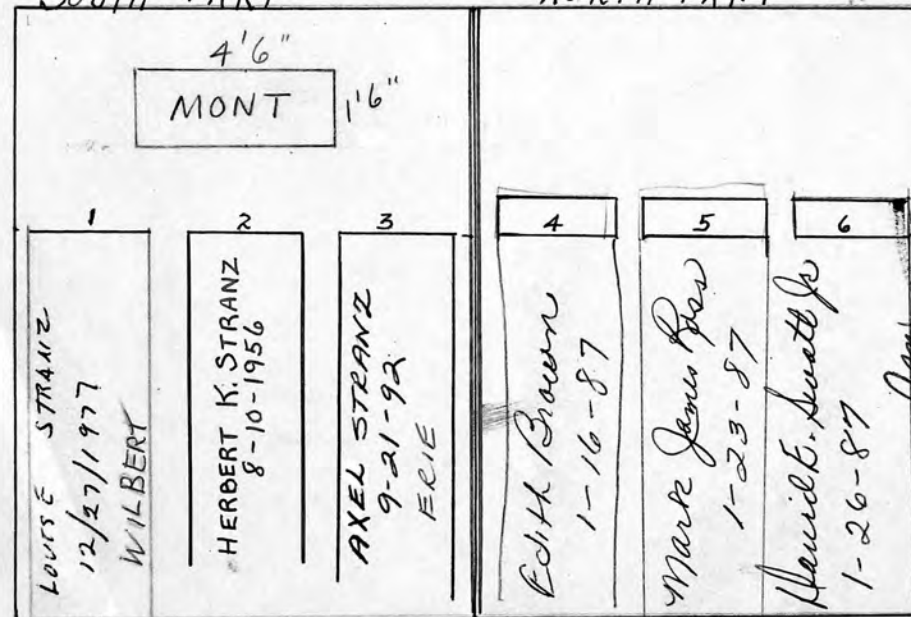 SOUTH PART
NORTH PART
4'6"
MONT
1'6"
1
LOUISE STRANZ
12/27/1977
WILBERT
2
HERBERT K. STRANZ
8-10-1956
3
AXEL STRANZ
9-21-92
ERIE
4
Edith Brown
1-16-87
5
Mark James Ross
1-23-87
6
David E. Jr
1-26-87